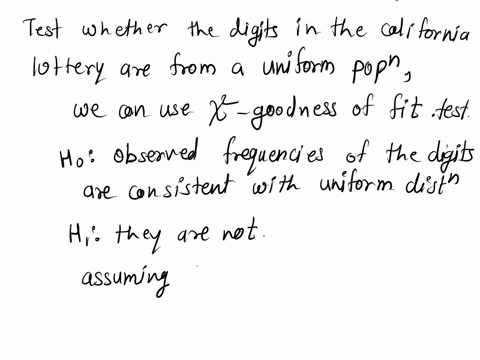 Test whether the digits in the california
lottery are from a uniform popⁿ,
we can use χ²-goodness of fit .test.
H₀: observed frequencies of the digits
are consistent with uniform distⁿ
H₁: they are not.
assuming